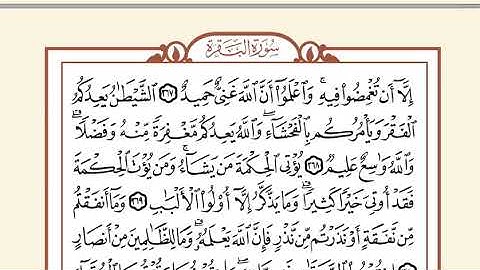 سُورَةُ البَقَرَةِ
إِلَّا أَن تُغْمِضُوا۟ فِيهِ ۚ وَٱعْلَمُوٓا۟ أَنَّ ٱللَّهَ غَنِىٌّ حَمِيدٌ ٢٦٧ ٱلشَّيْطَٰنُ يَعِدُكُمُ
ٱلْفَقْرَ وَيَأْمُرُكُم بِٱلْفَحْشَآءِ ۖ وَٱللَّهُ يَعِدُكُم مَّغْفِرَةً مِّنْهُ وَفَضْلًا ۗ
وَٱللَّهُ وَٰسِعٌ عَلِيمٌ ٢٦٨ يُؤْتِى ٱلْحِكْمَةَ مَن يَشَآءُ ۚ وَمَن يُؤْتَ ٱلْحِكْمَةَ
فَقَدْ أُوتِىَ خَيْرًا كَثِيرًا ۗ وَمَا يَذَّكَّرُ إِلَّآ أُو۟لُوا۟ ٱلْأَلْبَٰبِ ٢٦٩ وَمَآ أَنفَقْتُم
مِّن نَّفَقَةٍ أَوْ نَذَرْتُم مِّن نَّذْرٍ فَإِنَّ ٱللَّهَ يَعْلَمُهُۥ ۗ وَمَا لِلظَّٰلِمِينَ مِنْ أَنصَارٍ